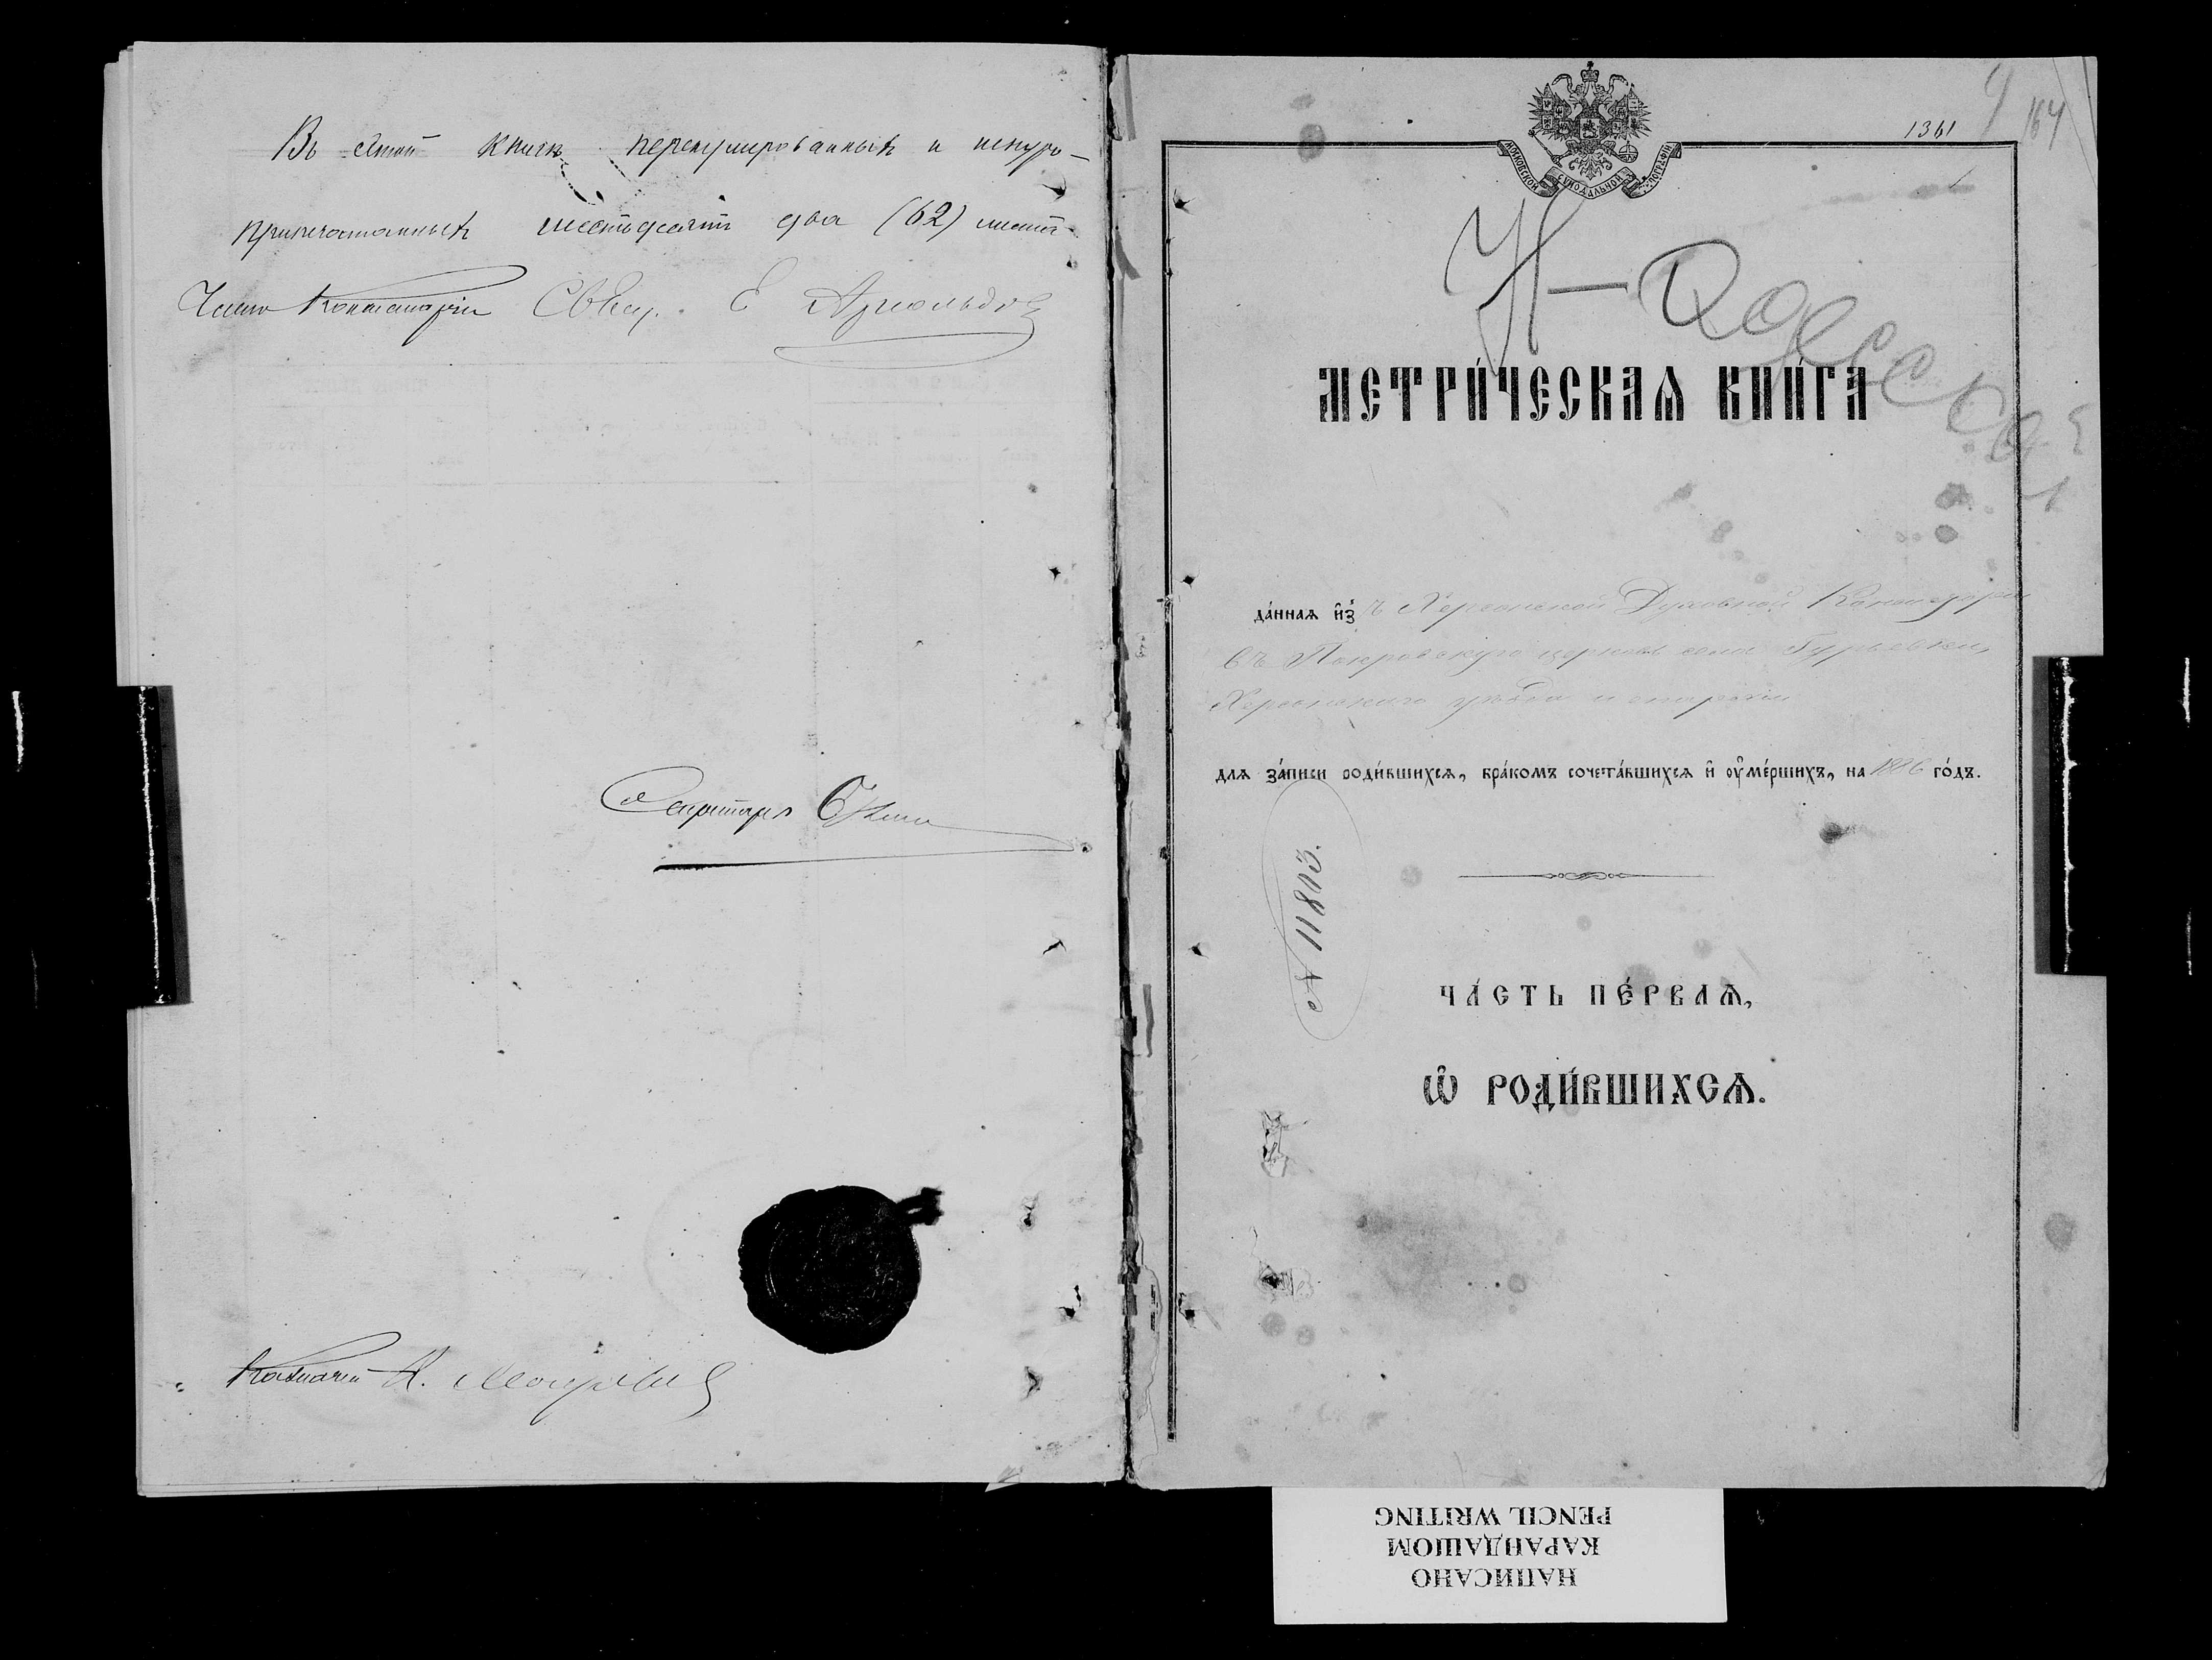 Въ этой книгѣ перенумерованныхъ и шнуро-
припечатанныхъ шестьдесятъ два (62) листа
Членъ Консисторіи Свящ.
Секретарь
Казначей
4 164
1361
МОСКОВСКОЙ СѴНОДАЛЬНОЙ ТИПОГРАФІИ
Н-Одесса
МЕТРИ́ЧЕСКАѦ КНИ́ГА
да́ннаѧ и҆з̾ ъ Херсонской Духовной Консисторіи
въ Покровскую церковь села Гурьевки,
Херсонскаго уѣзда и епархіи
длѧ за́писи роди́вшихсѧ, бра́комъ сочета́вшихсѧ и҆ ᲂу҆ме́ршихъ, на 1886 го́дъ.
N 11803.
ЧА́СТЬ ПЕ́РВАѦ,
Ѡ҆ РОДИ́ВШИХСѦ.
НАПИСАНО
КАРАНДАШОМ
PENCIL WRITING